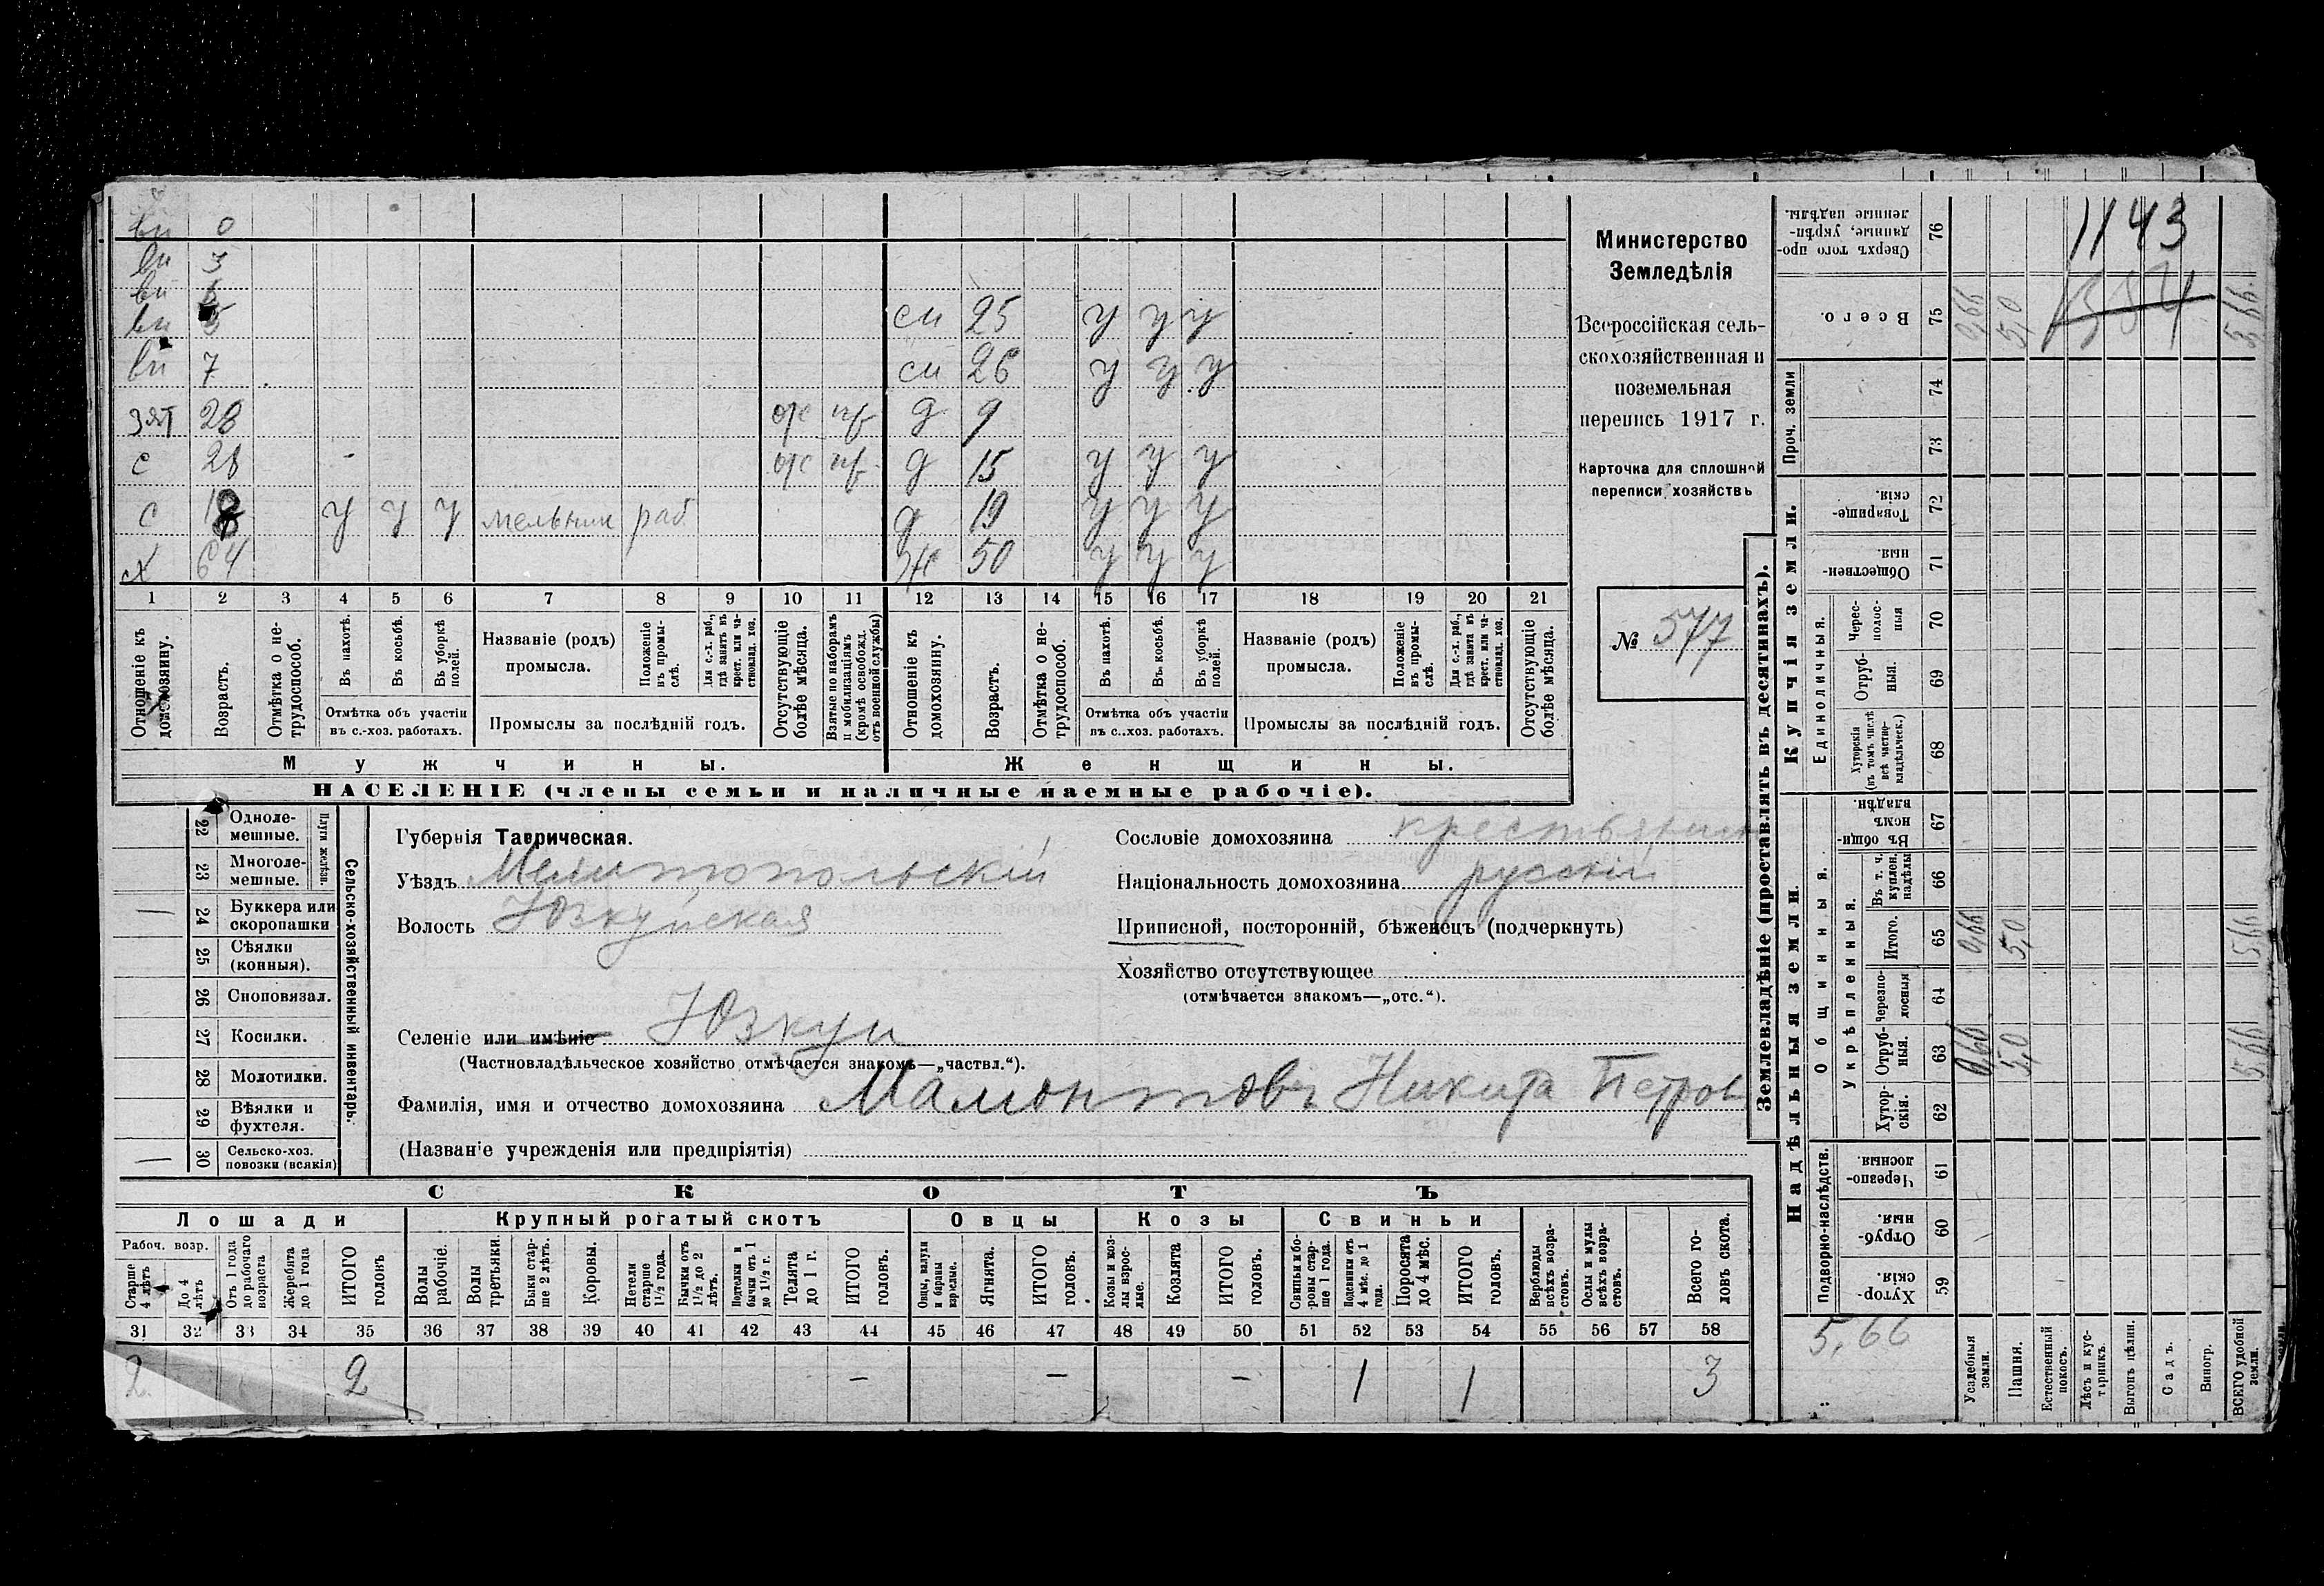 вн 0
вн 3
вн
вн 5 сн 25 у у у
вн 7 сн 26 у у у
зят 28 д 9
с 28 д 15 у у у
с 18 у у у мельник раб д 19 у у у
х 64 ж 50 у у у
1 2 3 4 5 6 7 8 9 10 11 12 13 14 15 16 17 18 19 20 21
Отношеніе къ домохозяину.
Возрастъ.
Отмѣтка о нетрудоспособ.
Въ пахотѣ.
Въ косьбѣ.
Въ уборкѣ полей.
Отмѣтка объ участіи
въ с.-хоз. работахъ.
Названіе (родъ)
промысла.
Положеніе въ промыслѣ.
Для с.-х. раб., гдѣ занятъ въ крест. или частновлад. хоз.
Промыслы за послѣдній годъ.
Отсутствующіе болѣе мѣсяца.
Взятые по наборамъ и мобилизаціямъ (кромѣ освобожд. отъ военной службы)
Отношеніе къ домохозяину.
Возрастъ.
Отмѣтка о нетрудоспособ.
Въ пахотѣ.
Въ косьбѣ.
Въ уборкѣ полей.
Отмѣтка объ участіи
въ с.-хоз. работахъ.
Названіе (родъ)
промысла.
Положеніе въ промыслѣ.
Для с.-х. раб., гдѣ занята въ крест. или частновлад. хоз.
Промыслы за послѣдній годъ.
Отсутствующіе болѣе мѣсяца.
Мужчины. Женщины.
НАСЕЛЕНІЕ (члены семьи и наличные наемные рабочіе).
Министерство
Земледѣлія
Всероссійская сель-
скохозяйственная и
поземельная
перепись 1917 г.
Карточка для сплошной
переписи хозяйствъ
№ 577
22 Одноле-
мешные.
23 Многоле-
мешные.
Плуги желѣзн.
— 24 Буккера или
скоропашки
25 Сѣялки
(конныя).
26 Сноповязал.
27 Косилки.
28 Молотилки.
29 Вѣялки и
фухтеля.
— 30 Сельско-хоз.
повозки (всякія)
Сельско-хозяйственный инвентарь.
Губернія Таврическая.
Уѣздъ Мелитопольскій
Волость Юзкуйская
Селеніе или имѣніе Юзкуи
(Частновладѣльческое хозяйство отмѣчается знакомъ—„частвл.“).
Фамилія, имя и отчество домохозяина Мамонтовъ Никита Петров
(Названіе учрежденія или предпріятія)
Сословіе домохозяина крестьянин
Національность домохозяина русскій
Приписной, посторонній, бѣженецъ (подчеркнуть)
Хозяйство отсутствующее
(отмѣчается знакомъ—„отс.“).
СКОТЪ
Лошади Крупный рогатый скотъ Овцы Козы Свиньи
Рабоч. возр.
Старше 4 лѣтъ
До 4 лѣтъ
Отъ 1 года до рабочаго возраста
Жеребята до 1 года
ИТОГО головъ
Волы рабочіе.
Волы третьяки.
Быки старше 2 лѣтъ.
Коровы.
Нетели старше 1½ года.
Бычки отъ 1½ до 2 лѣтъ.
Подтелки и бычки отъ 1 до 1½ г.
Телята до 1 г.
ИТОГО головъ.
Овцы, валухи и бараны взрослые.
Ягнята.
ИТОГО головъ.
Козы и козлы взрослые.
Козлята
ИТОГО головъ.
Свиньи и боровы старше 1 года.
Подсвинки отъ 4 мѣс. до 1 года.
Поросята до 4 мѣс.
ИТОГО головъ.
Верблюды всѣхъ возрастовъ.
Ослы и мулы всѣхъ возрастовъ.
Всего головъ скота.
31 32 33 34 35 36 37 38 39 40 41 42 43 44 45 46 47 48 49 50 51 52 53 54 55 56 57 58
2 2 — — — 1 1 3
Землевладѣніе (проставлять въ десятинахъ).
Надѣльныя земли. Купчія земли.
Подворно-наслѣдств.
Общинныя.
Укрѣпленныя.
Единоличныя.
Проч. земли
59 Хутор-
скія.
60 Отруб-
ныя.
61 Черезпо-
лосныя.
62 Хутор-
скія.
63 Отруб-
ныя. 0,66 5,0 5,66
64 Черезпо-
лосныя
65 Итого. 0,66 5,0 5,66
66 Въ т. ч. куплен. надѣлы
67 Въ общи-
номъ
владѣн.
68 Хуторскія (въ томъ числѣ всѣ частно-владѣльческ.)
69 Отруб-
ныя.
70 Черес-
полос-
ныя
71 Обществен-
ныя.
72 Товарище-
скія.
73
74
75 Всего. 0,66 5,0 5,66
76 Сверхъ того про-
данные, укрѣп-
ленные надѣлы.
1143
5,66
Усадебныя земли.
Пашня.
Естественный покосъ.
Лѣсъ и кустарникъ.
Выгонъ цѣлин.
Садъ.
Виногр.
ВСЕГО удобной земли.